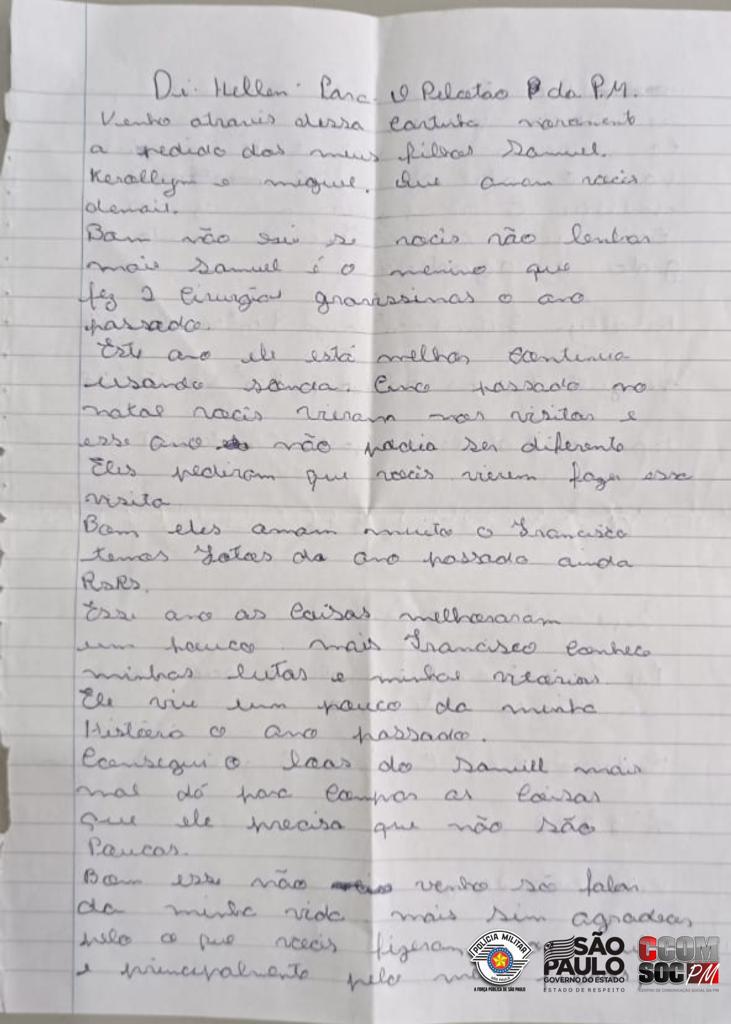 De: Hellen Para O Pelotão P da P.M.
Venho atraves dessa cartinha novamente
a pedido dos meus filhos Samuel.
Kerollyn e miguel. Que amam vocis
demais.
Bom não sei se vocis não lembra
mais Samuel é o menino que
fez 2 Cirurgias gravissimas o ano
passado.
Este ano ele está melhor Continua
usando sonda. Ano passado no
natal vocis vieram nos visitar e
esse ano não podia ser diferente
Eles pediram que vocis vierem fazer essa
visita
Bom eles amam muito o Francisco
temos Fotos do ano passado ainda
RsRs.
Esse ano as Coisas melhoraram
um pouco. mais Francisco Conhece
minhas lutas e minhas vitorias
Ele viu um pouco da minha
História o ano passado.
Consegui o loas do Samuel mais
mal dá para Compar as Coisas
que ele precisa que não são
Poucas.
Bom esse não venho só falar
da minha vida. mais sim agradecer
pelo o que vocis fizeram
e principalmente pelo
POLÍCIA MILITAR
SÃO PAULO
A FORÇA PÚBLICA DE SÃO PAULO
SÃO
PAULO
GOVERNO DO ESTADO
ESTADO DE RESPEITO
CCOM
SOC PM
CENTRO DE COMUNICAÇÃO SOCIAL DA PM